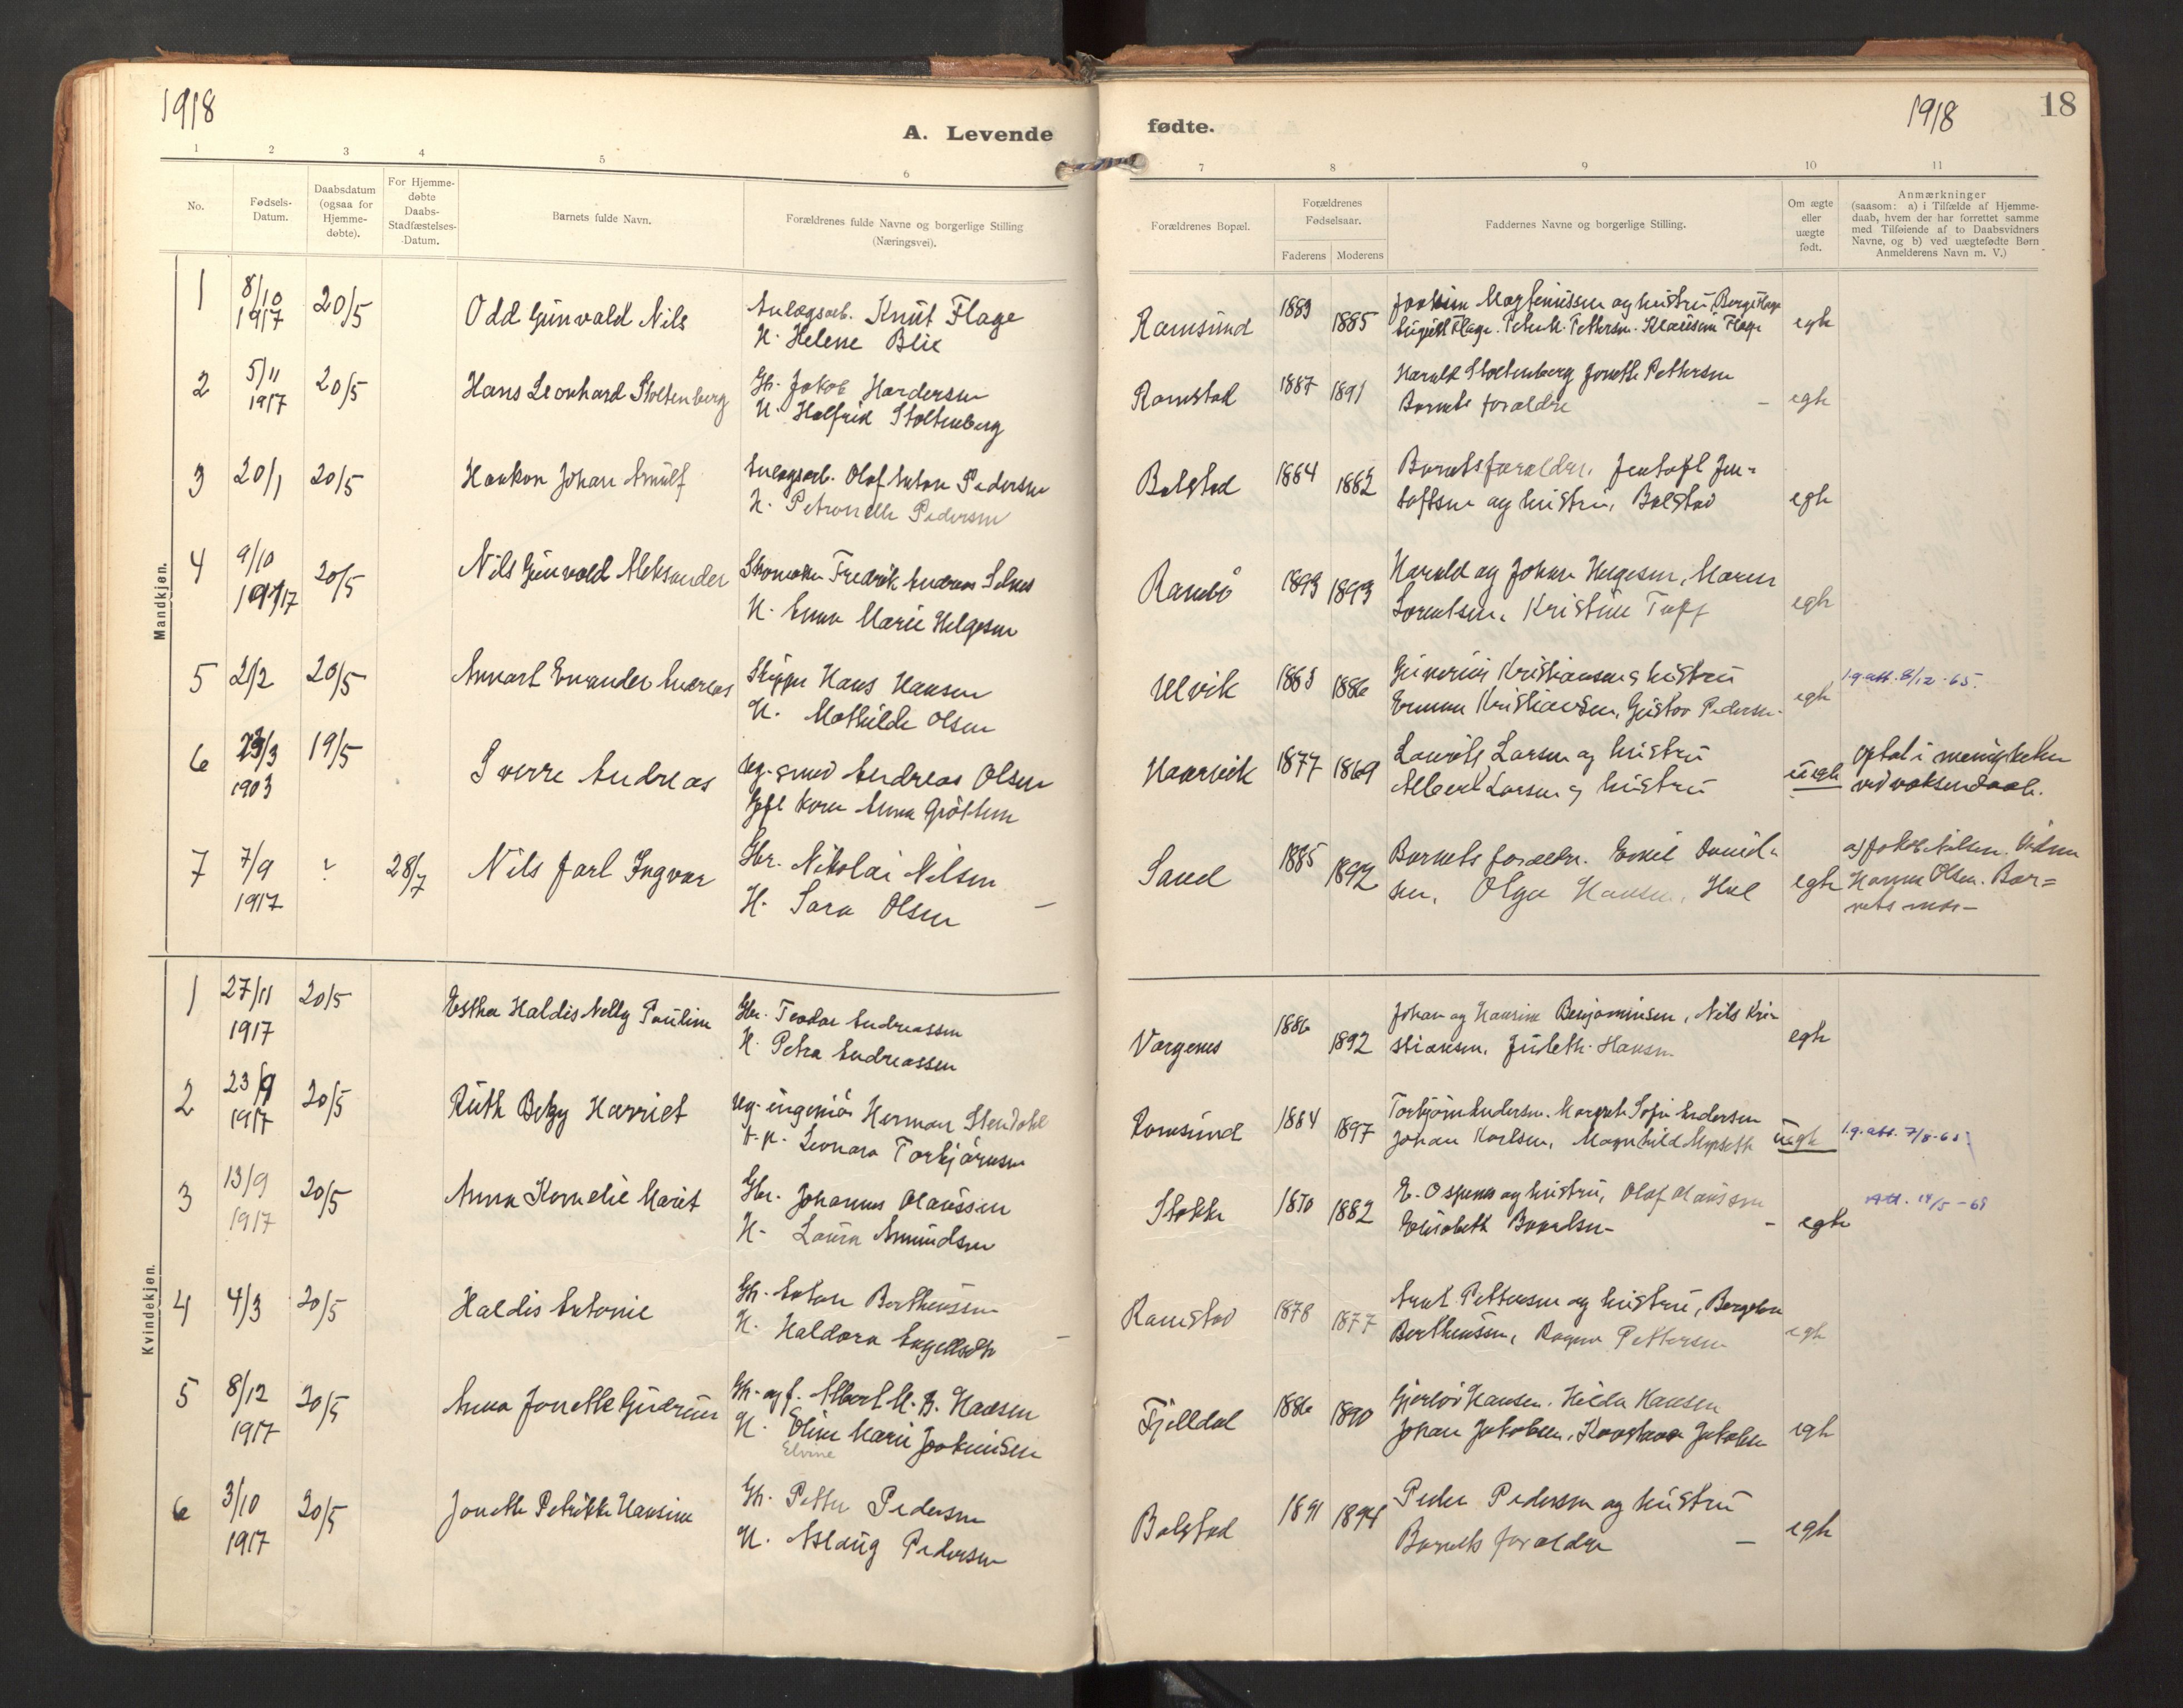 1918
A. Levende
fødte.
1918
18
1
2
3
4
5
6
7
8
9
10
11
No.
Fødsels-
Datum.
Daabsdatum
(ogsaa for
Hjemme-
døbte).
For Hjemme-
døbte
Daabs-
Stadfæstelses-
Datum.
Barnets fulde Navn.
Forældrenes fulde Navne og borgerlige Stilling
(Næringsvei).
Forældrenes Bopæl.
Forældrenes
Fødselsaar.
Faderens
Moderens
Faddernes Navne og borgerlige Stilling.
Om ægte
eller
uægte
født.
Anmærkninger
(saasom: a) i Tilfælde af Hjemme-
daab, hvem der har forrettet samme
med Tilføiende af to Daabsvidners
Navne, og b) ved uægtefødte Børn
Anmelderens Navn m. V.)
Mandkjøn.
1 8/10 20/5 Odd Gunvald Nils Anlægsarb. Knut Flage Ramsund 1889 1885 egte
1917 H. Helene Blix
2 5/11 20/5 Hans Leonhard Stoltenberg Gbr. Jakob Hardersen Ramstad 1887 1891 Harald Stoltenberg Jonette Pettersen egte
1917 H. Halfrid Stoltenberg Barnets foraldre –
3 20/1 20/5 Haakon Johan Arnulf Anlægsarb. Olaf Anton Pedersen Balstad 1884 1882 Barnets foraldre. Jentoft Jen-
H. Petronelle Pedersen toftsen og hustru, Balstad egte
4 9/10 20/5 Nils Gunvald Aleksander Skomaker Fredrik Andreas Rambø 1893 1893 Harald og Johan Helgesen, Maren
1917 H. Anna Marie Helgesen Lorentsen, Kristine egte
5 21/2 20/5 Skipper Hans Hansen Ulvik 1883 1886 Kristiansen & hustru egte 1.g.att. 8/12-65.
H. Mathilde Olsen Kristiansen, Gustav Pedersen
6 23/3 19/5 Sverre Andreas Ug. smed Andreas Olsen Haarvik 1877 1869 Laurits Larsen og hustru uegte Optat i menigheten
1903 Anna Albert Larsen & hustru ved voksendaab.
7 7/9 ? 28/7 Nils Jarl Ingvar Gbr. Nikolai Nilsen Sand 1885 1892 Barnets foraldre. Eskil Daniel- egte af Jakob Nilsen. Vidner
1917 H. Sara Olsen – sen, Olga Hansen, Hol Hanna Olsen. Bar=
nets mor –
Kvindekjøn.
1 27/11 20/5 Esther Haldis Nelly Pauline Gbr. Teodor Andreassen Vargenes 1886 1892 Johan og Hansine Benjaminsen, Nils Kri- egte
1917 H. Petra Andreassen stiansen, Judeth Hansen
2 23/9 20/5 Ruth Betzy Harriet Ug. ingeniør Herman Stendahl Ramsund 1884 1897 Torbjørn Andersen. Margrete Sofie Andersen uegte 1.g.att. 7/8-65
1917 Leonara Torbjørnsen Johan Karlsen, Magnhild
3 13/9 20/5 Anna Kornelie Marit Gbr. Johannes Olaussen Stokke 1870 1882 E. Ospenes og hustru, Olaf Olaussen egte att. 14/5-69
1917 H. Laura Amundsen Elisabeth –
4 4/3 20/5 Haldis Antonie Gbr. Anton Bertheussen Ramstad 1878 1877 Arnt Pettersen og hustru, egte
H. Haldora – Bertheussen, Ragna Pettersen
5 8/12 20/5 Anna Jonette Gudrun Gbr. og f. Albert M. B. Hansen Fjelldal 1886 1890 Gjerløv Hansen. Hilda Hansen egte
1917 H. Eline Marie Joakimsen Johan Jakobsen, Jakobsen
Elvine
6 3/10 20/5 Jonette Petrikke Hansine Gbr. Petter Pedersen Balstad 1891 1894 Peder Pedersen og hustru egte
1917 H. Aslaug Pedersen Barnets foraldre –